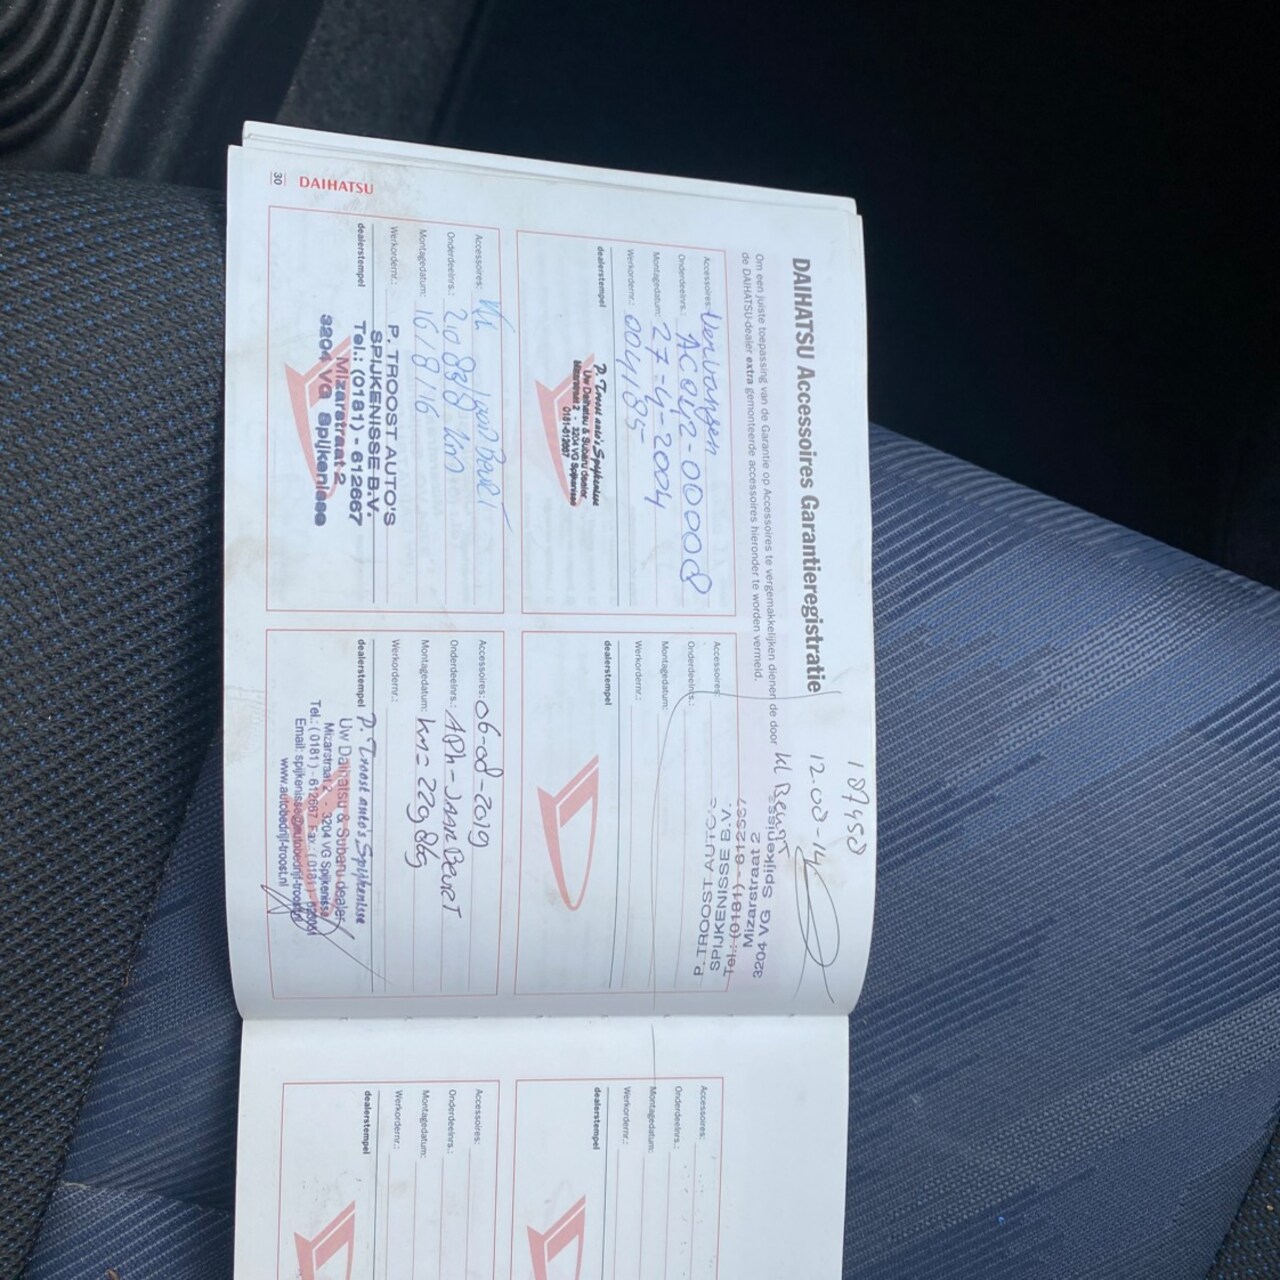 DAIHATSU Accessoires Garantieregistratie
187450
12.00-14
kl Beurt
Om een juiste toepassing van de Garantie op Accessoires te vergemakkelijken dienen de door
de DAIHATSU-dealer extra gemonteerde accessoires hieronder te worden vermeld.
Accessoires: Vervangen
Onderdeelnrs.: AC042-00008
Montagedatum: 27-4-2004
Werkordernr.: 004185
dealerstempel
P. Troost auto's Spijkenisse
Uw Daihatsu & Subaru dealer
Mizarstraat 2 3204 VG Spijkenisse
0181-612667
Accessoires:
Onderdeelnrs.:
Montagedatum:
Werkordernr.:
dealerstempel
P. TROOST AUTO'S
SPIJKENISSE B.V.
Tel.: (0181) - 612667
Mizarstraat 2
3204 VG Spijkenisse
Accessoires: Beurt
Onderdeelnrs.: km
Montagedatum: 16/8/16
Werkordernr.:
dealerstempel
P. TROOST AUTO'S
SPIJKENISSE B.V.
Tel.: (0181) - 612667
Mizarstraat 2
3204 VG Spijkenisse
Accessoires: 06-08-2019
Onderdeelnrs.: APK-JAAR Beurt
Montagedatum: km = 229 869
Werkordernr.:
dealerstempel
P. Troost auto's Spijkenisse
Uw Daihatsu & Subaru dealer
Mizarstraat 2 - 3204 VG Spijkenisse
Tel.: (0181) - 612667 Fax.: (0181) -
Email: spijkenisse@autobedrijf-troost.nl
www.autobedrijf-troost.nl
30 DAIHATSU
Accessoires:
Onderdeelnrs.:
Montagedatum:
Werkordernr.:
dealerstempel
Accessoires:
Onderdeelnrs.:
Montagedatum:
Werkordernr.:
dealerstempel